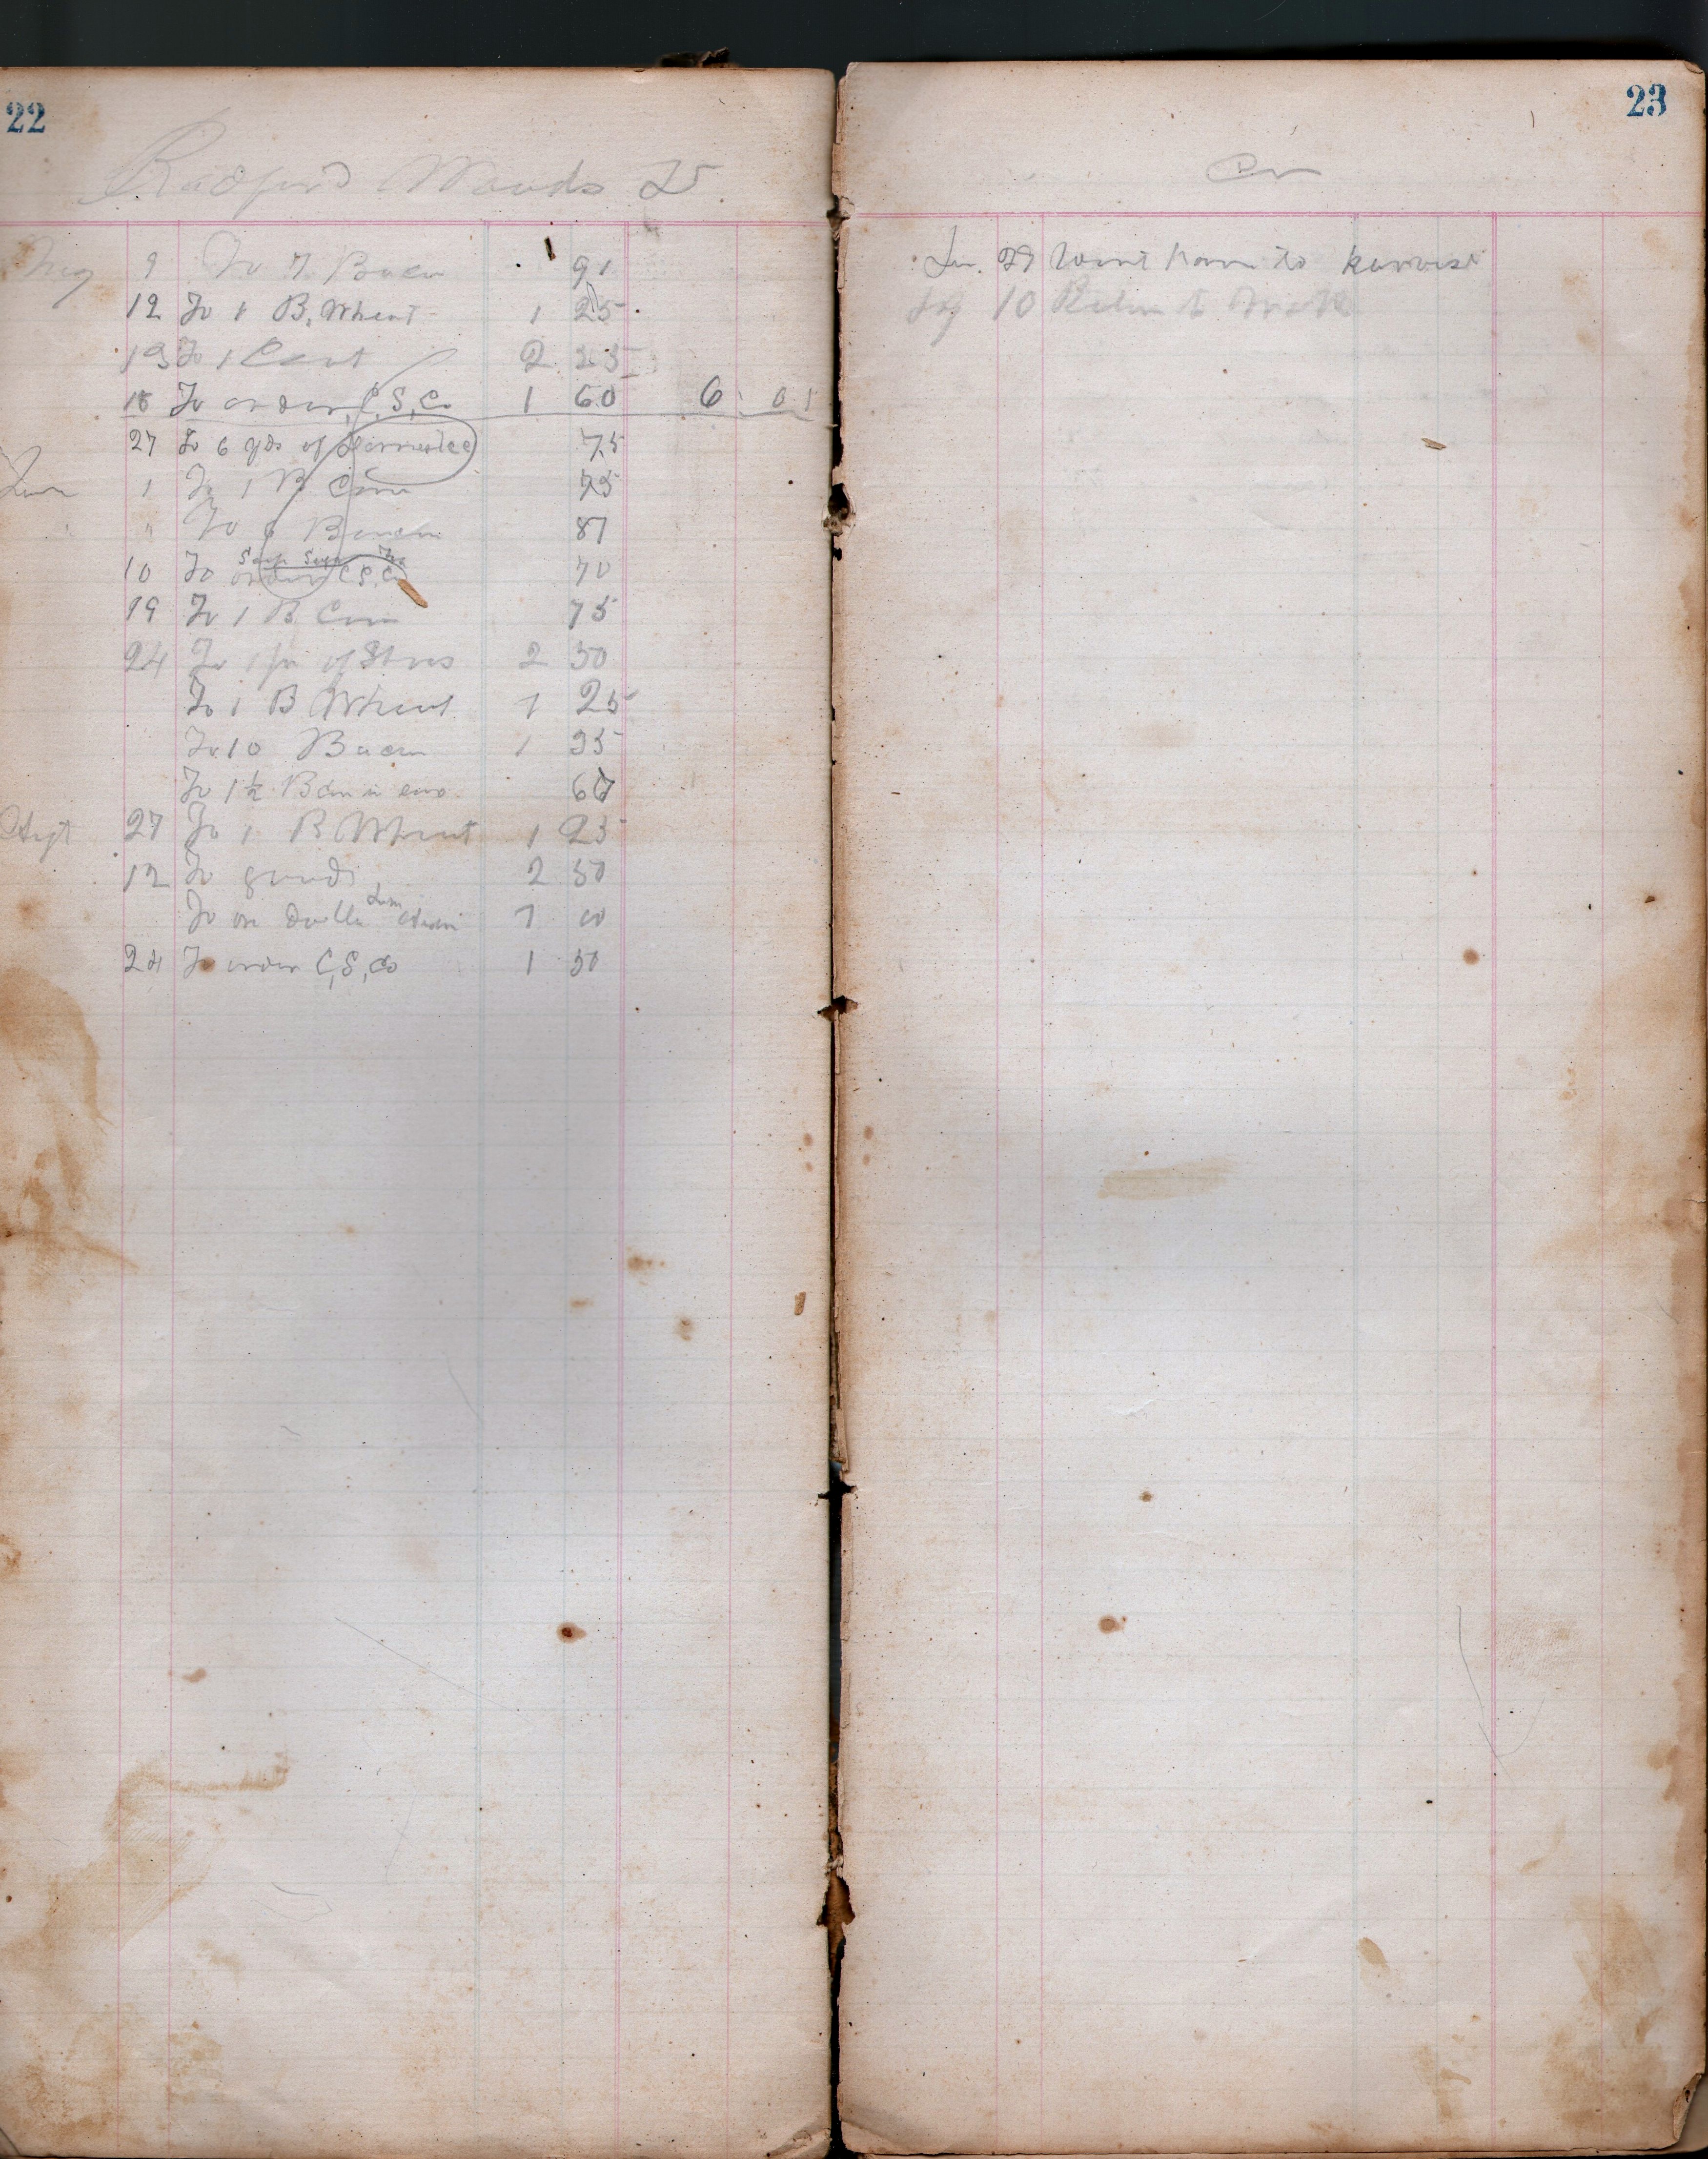 22
Radford Woods Dr
May 9 To 7 Bacon 91
12 To 1 B. Wheat 1 25
13 To 1 Coat 2 25
18 To order C,S,Co 1 60 6 01
27 To 6 yds of Domestic 75
June 1 To 1 B Corn 75
" " To Bacon 87
10 To order C S, Co 70
19 To 1 B Corn 75
24 To 1 pr of Shoes 2 50
To 1 B Wheat 1 25
To 10 Bacon 1 35
To 1½ B Corn in ears
27 To 1 B Wheat 1 25
12 To goods 2 50
To on dolla 1 00
24 To order C,S,Co 1 50
23
Cr
Jun. 29 Went home to harvest
10 Return to Work